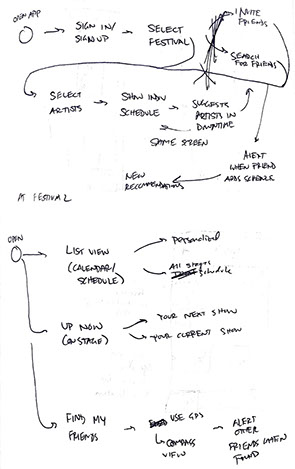 OPEN APP
SIGN IN/
SIGN UP
SELECT
FESTIVAL
INVITE
FRIENDS
SEARCH
FOR FRIENDS
SELECT
ARTISTS
SHOW INDIV
SCHEDULE
SUGGESTS
ARTISTS IN
DOWNTIME
SAME SCREEN
ALERT
WHEN FRIEND
ADDS SCHEDULE
NEW
RECOMMENDATIONS
AT FESTIVAL
OPEN
LIST VIEW
(CALENDAR/
SCHEDULE)
Personalized
All stages
schedule
UP NOW
(ON STAGE)
YOUR NEXT SHOW
YOUR CURRENT SHOW
FIND MY
FRIENDS
USE GPS
COMPASS
VIEW
ALERT
OTHER
FRIENDS WHEN
FOUND